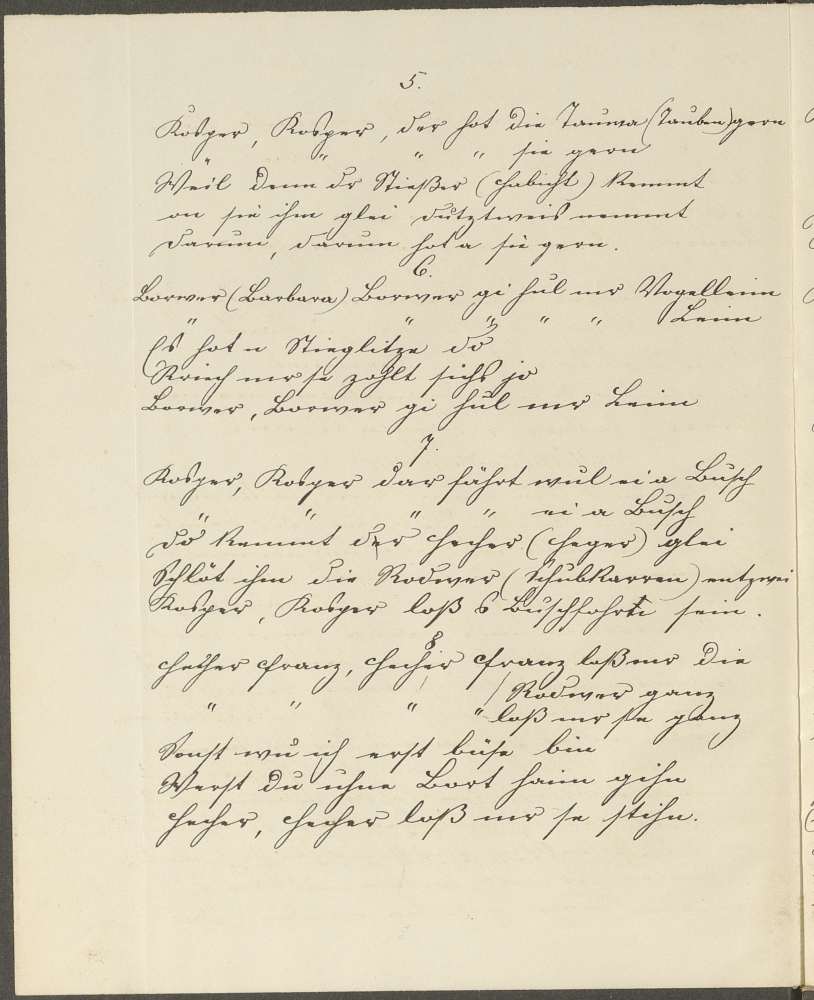 5.
Kosper, Kosper, der hot die Tauwa (Tauben) gern
" " " " sie gern
Weil denn dr Stießer (Habicht) kemmt
on sie ihm glei dutztweis nemmt
Darum, darum hot a sie gern.
6.
Borwer (Barbara) Borwer gi hul mr Vogelleim
" " " " " Leim
Es hot n Stieglitze dö
Kriech mr se zohlt sichs jo
Borwer, Borwer gi hul mr Leim
7.
Kosper, Kosper dar fährt wul ei a Busch
" " " " ei a Busch
Dö kemmt der Hecher (Heger) glei
Schlöt ihm die Rodwer (Schubkarren) entzwei
Kosper, Kosper loß s Buschfohrn sein.
8
Hecher Franz, Hecher Franz loß mr die
Rodwer ganz
" " " " loß mr se ganz
Sonst wu ich erst büse bin
Werst du uhne Bort haim gihn
Hecher, Hecher loß mr se stihn.